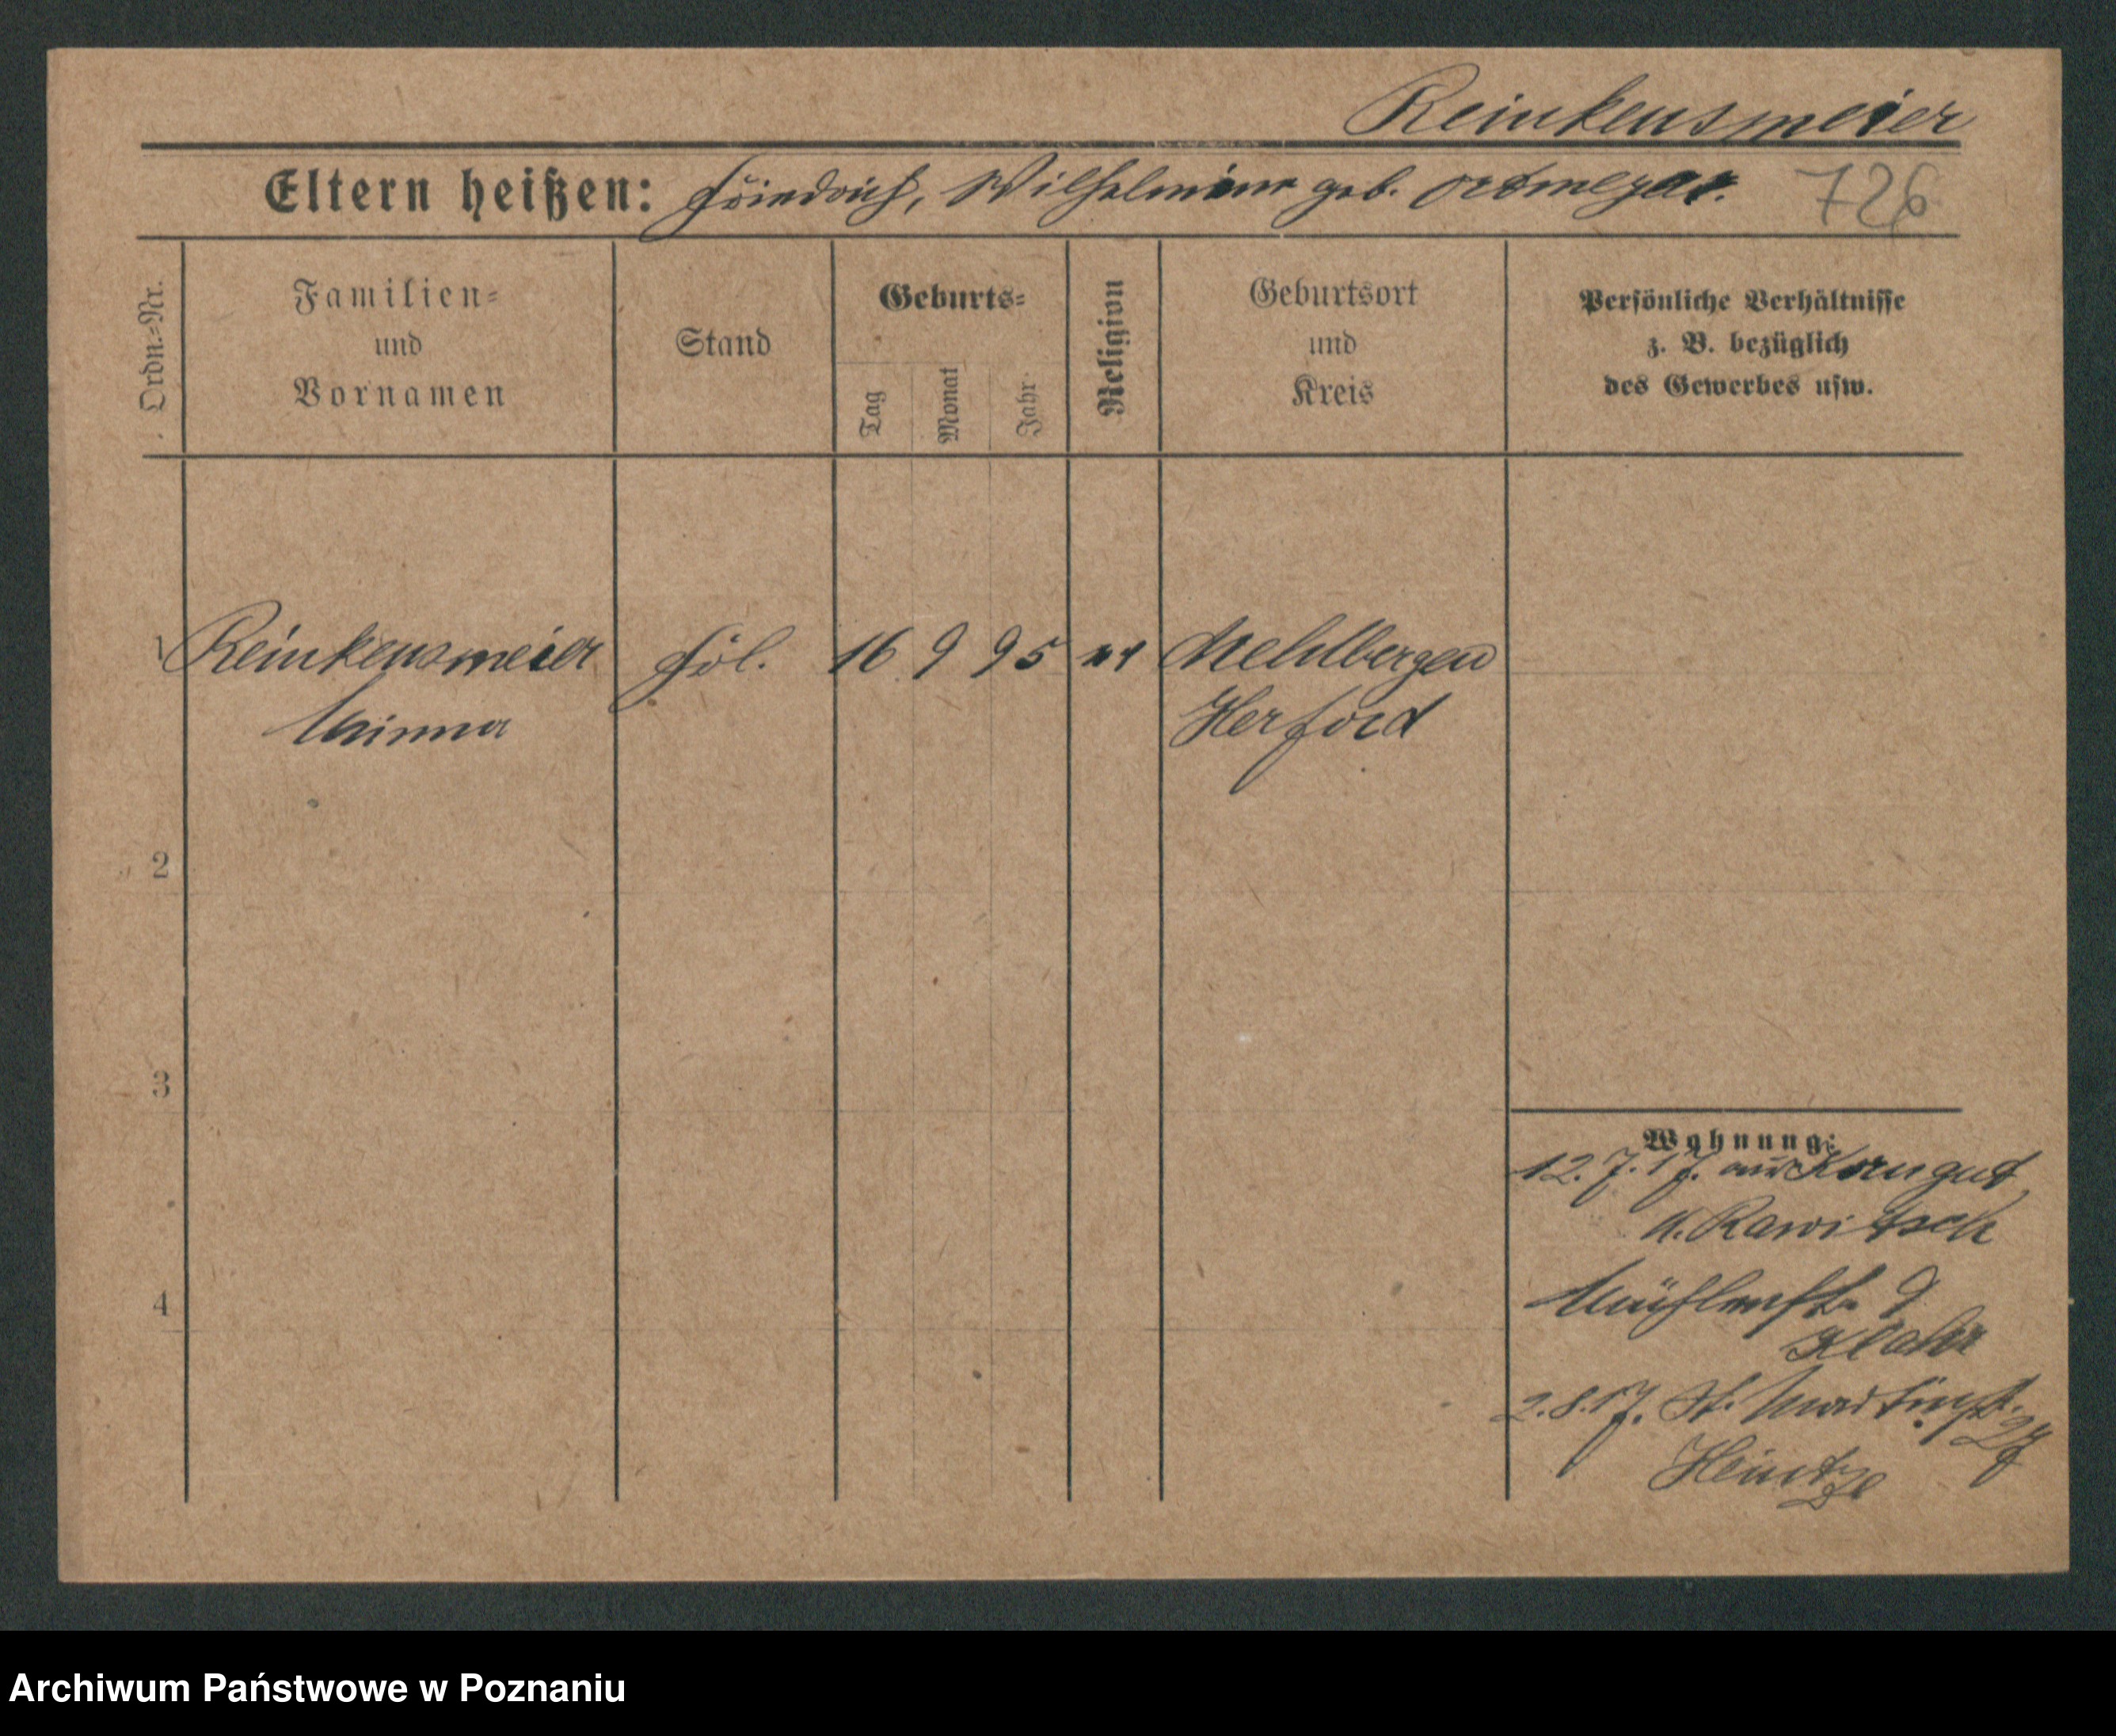 Reinkensmeier
Eltern heißen: Friedrich, Wilhelmine geb. Ortmeyer.
726
Ordn.-Nr.
Familien-
und
Vornamen
Stand
Geburts-
Tag
Monat
Jahr
Religion
Geburtsort
und
Kreis
Persönliche Verhältnisse
z. B. bezüglich
des Gewerbes usw.
1 Reinkensmeier Frl. 16 9 95 ev Mehlbergen
Minna Herford
2
3
4
Wohnung:
12.7.17. aus Korngut
K. Rawitsch
Mühlenst. 9
2.8.17. St. Martinst. 27
Heintze
Archiwum Państwowe w Poznaniu